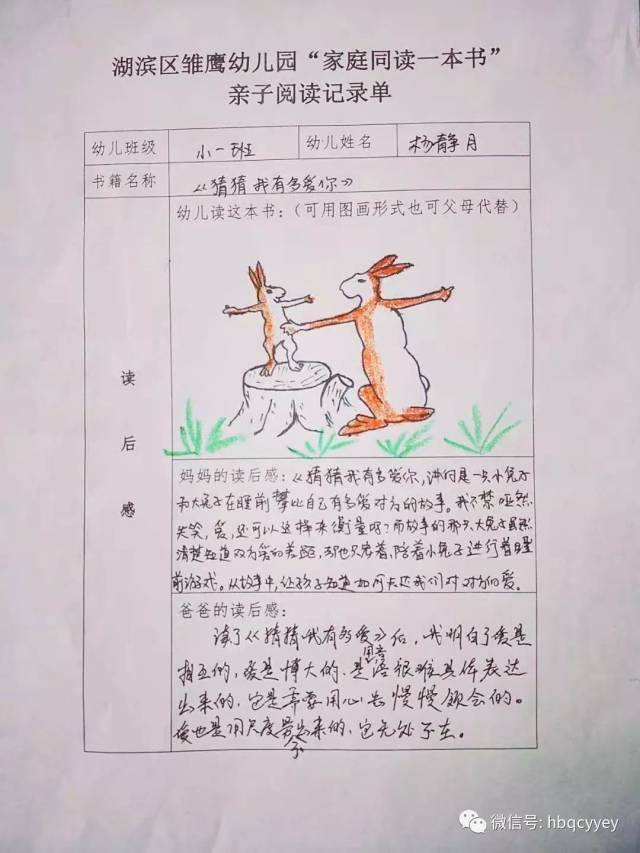 湖滨区雏鹰幼儿园“家庭同读一本书”
亲子阅读记录单
幼儿班级 小一班 幼儿姓名 杨静月
书籍名称 《猜猜我有多爱你》
幼儿读这本书：（可用图画形式也可父母代替）
读
后
感
妈妈的读后感：《猜猜我有多爱你，讲的是一只小兔子
和大兔子在睡前攀比自己有多爱对方的故事。我不禁哑然
失笑，爱，还可以这样来衡量吗？而故事的那只大兔子虽然
清楚知道双方爱的差距，却也只笑着，陪着小兔子进行着睡
前游戏。从故事中，让孩子知道如何表达我们对对方的爱。
爸爸的读后感：
读了《猜猜我有多爱》后，我明白了爱是
相互的，爱是博大的，是用言语很难具体表达
出来的，它是需要用心去慢慢领会的。
爱也是用尺度量不出来的，它无处不在。
微信号: hbqcyyey